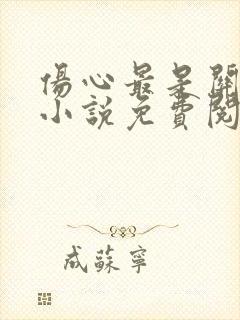 傷心最是關
小說免費閱
成蘇寧